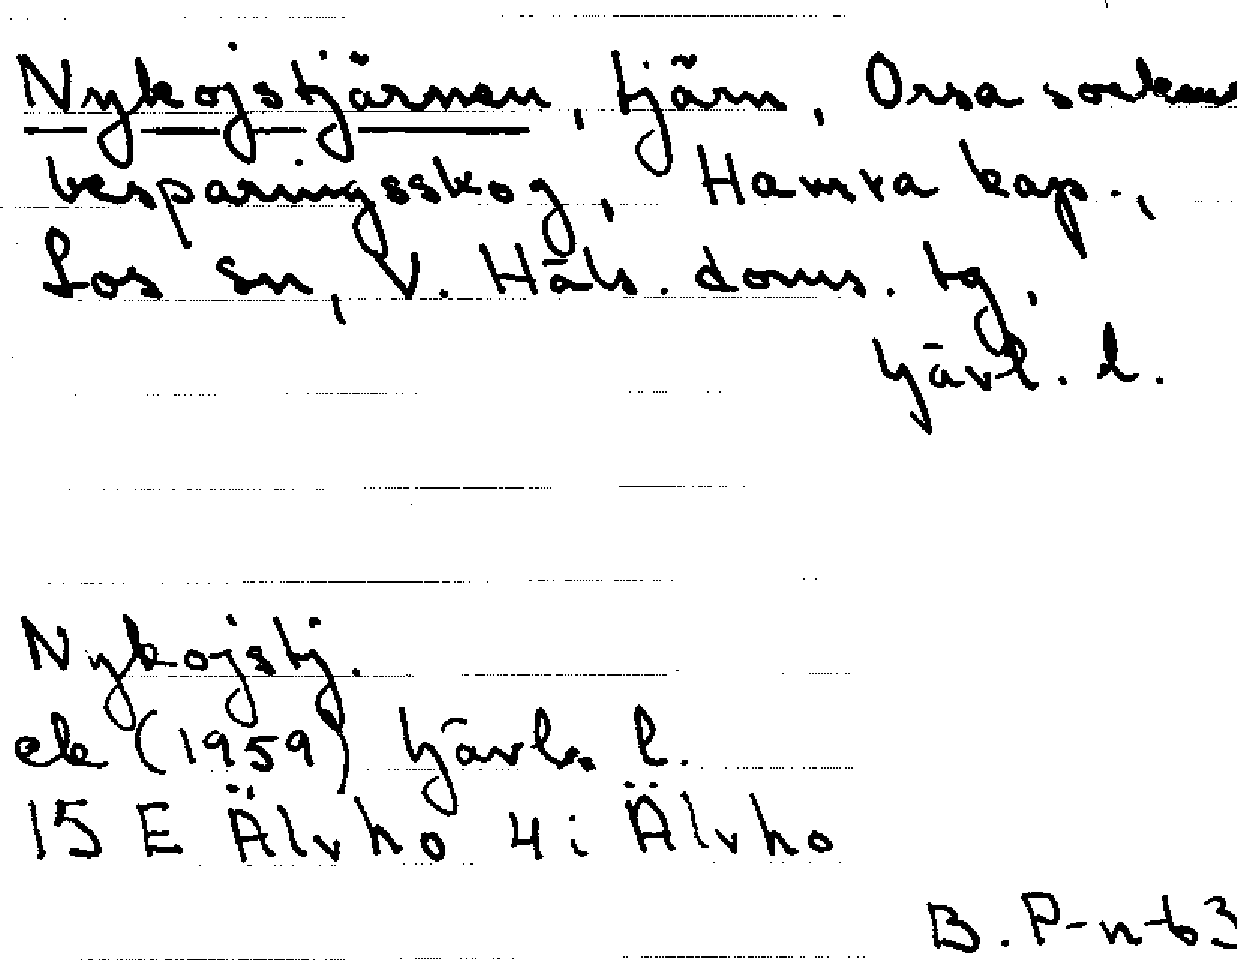 Nykojstjärnen, tjärn, Orsa sockens
besparingsskog, Hamra kap.,
Los sn, V. Häls. doms. tg,
Gävl. l.
Nykojstj.
ek (1959) Gävlb. l.
15 E Älvho 4i Älvho
B. P-n-63